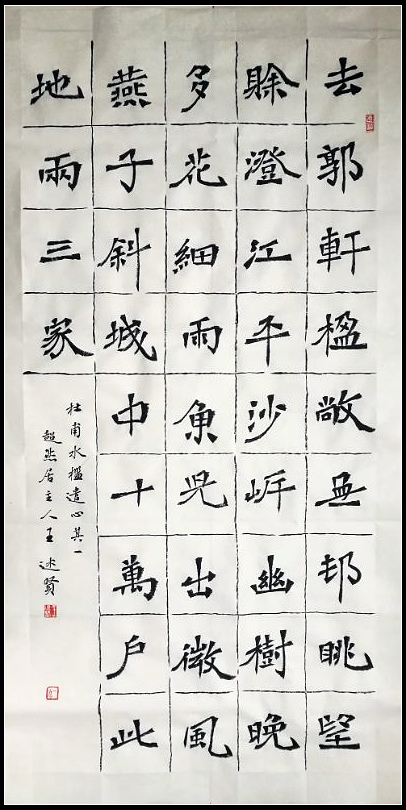 去郭軒楹敞無邨眺望
賖澄江平沙岸幽樹晚
多花細雨魚兒出微風
燕子斜城中十萬户此
地兩三家
杜甫水檻遣心其一
超然居主人王述賢